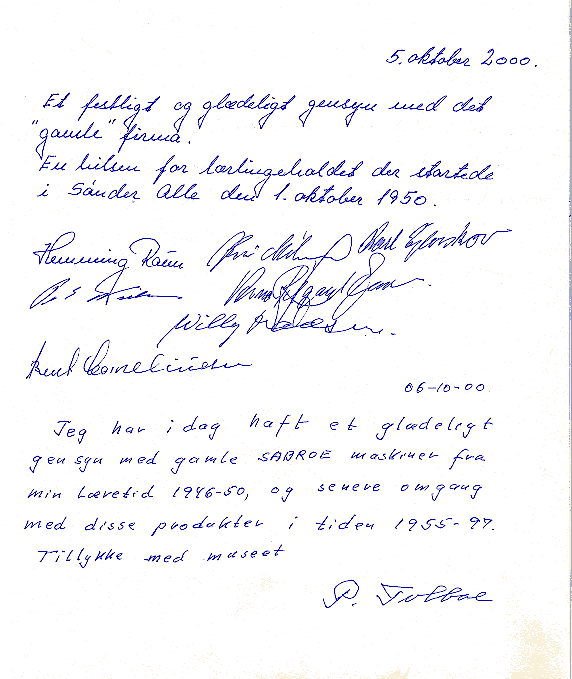 5. oktober 2000.
Et festligt og glædeligt gensyn med det
"gamle" firma.
En hilsen fra lærlingeholdet der startede
i Sønder Alle den 1. oktober 1950.
Henning Ravn
Willy Madsen.
Bent Cornelius
06-10-00
Jeg har idag haft et glædeligt
gensyn med gamle SABROE maskiner fra
min Læretid 1946-50, og senere omgang
med disse produkter i tiden 1955-97.
Tillykke med museet
P. Tolboe